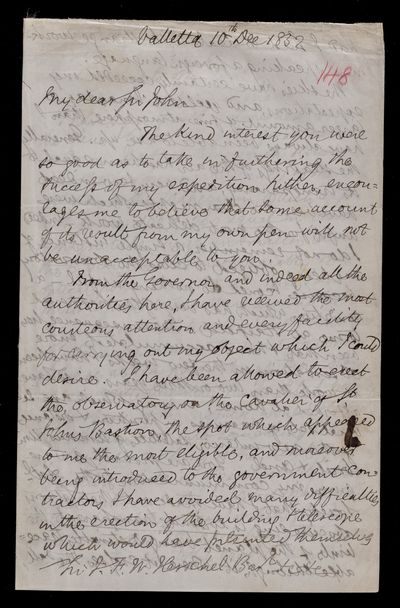 Valletta 10th Dec 1832
148
My dear Sir John
The kind interest you were
so good as to take in furthering the
success of my expedition hither, encou-
rages me to believe that some account
of its result from my own pen will not
be unacceptable to you.
From the Governor and indeed all the
authorities here, I have received the most
courteous attention and every facility
for carrying out my object which I could
desire. I have been allowed to erect
the observatory on the Cavalier of St
John's Bastion, the spot which appeared
to me the most eligible, and moreover
being introduced to the government con-
tractors I have avoided many difficulties
in the erection of the building & telescope
which would have presented themselves
Sir J. F. W. Herschel Bart